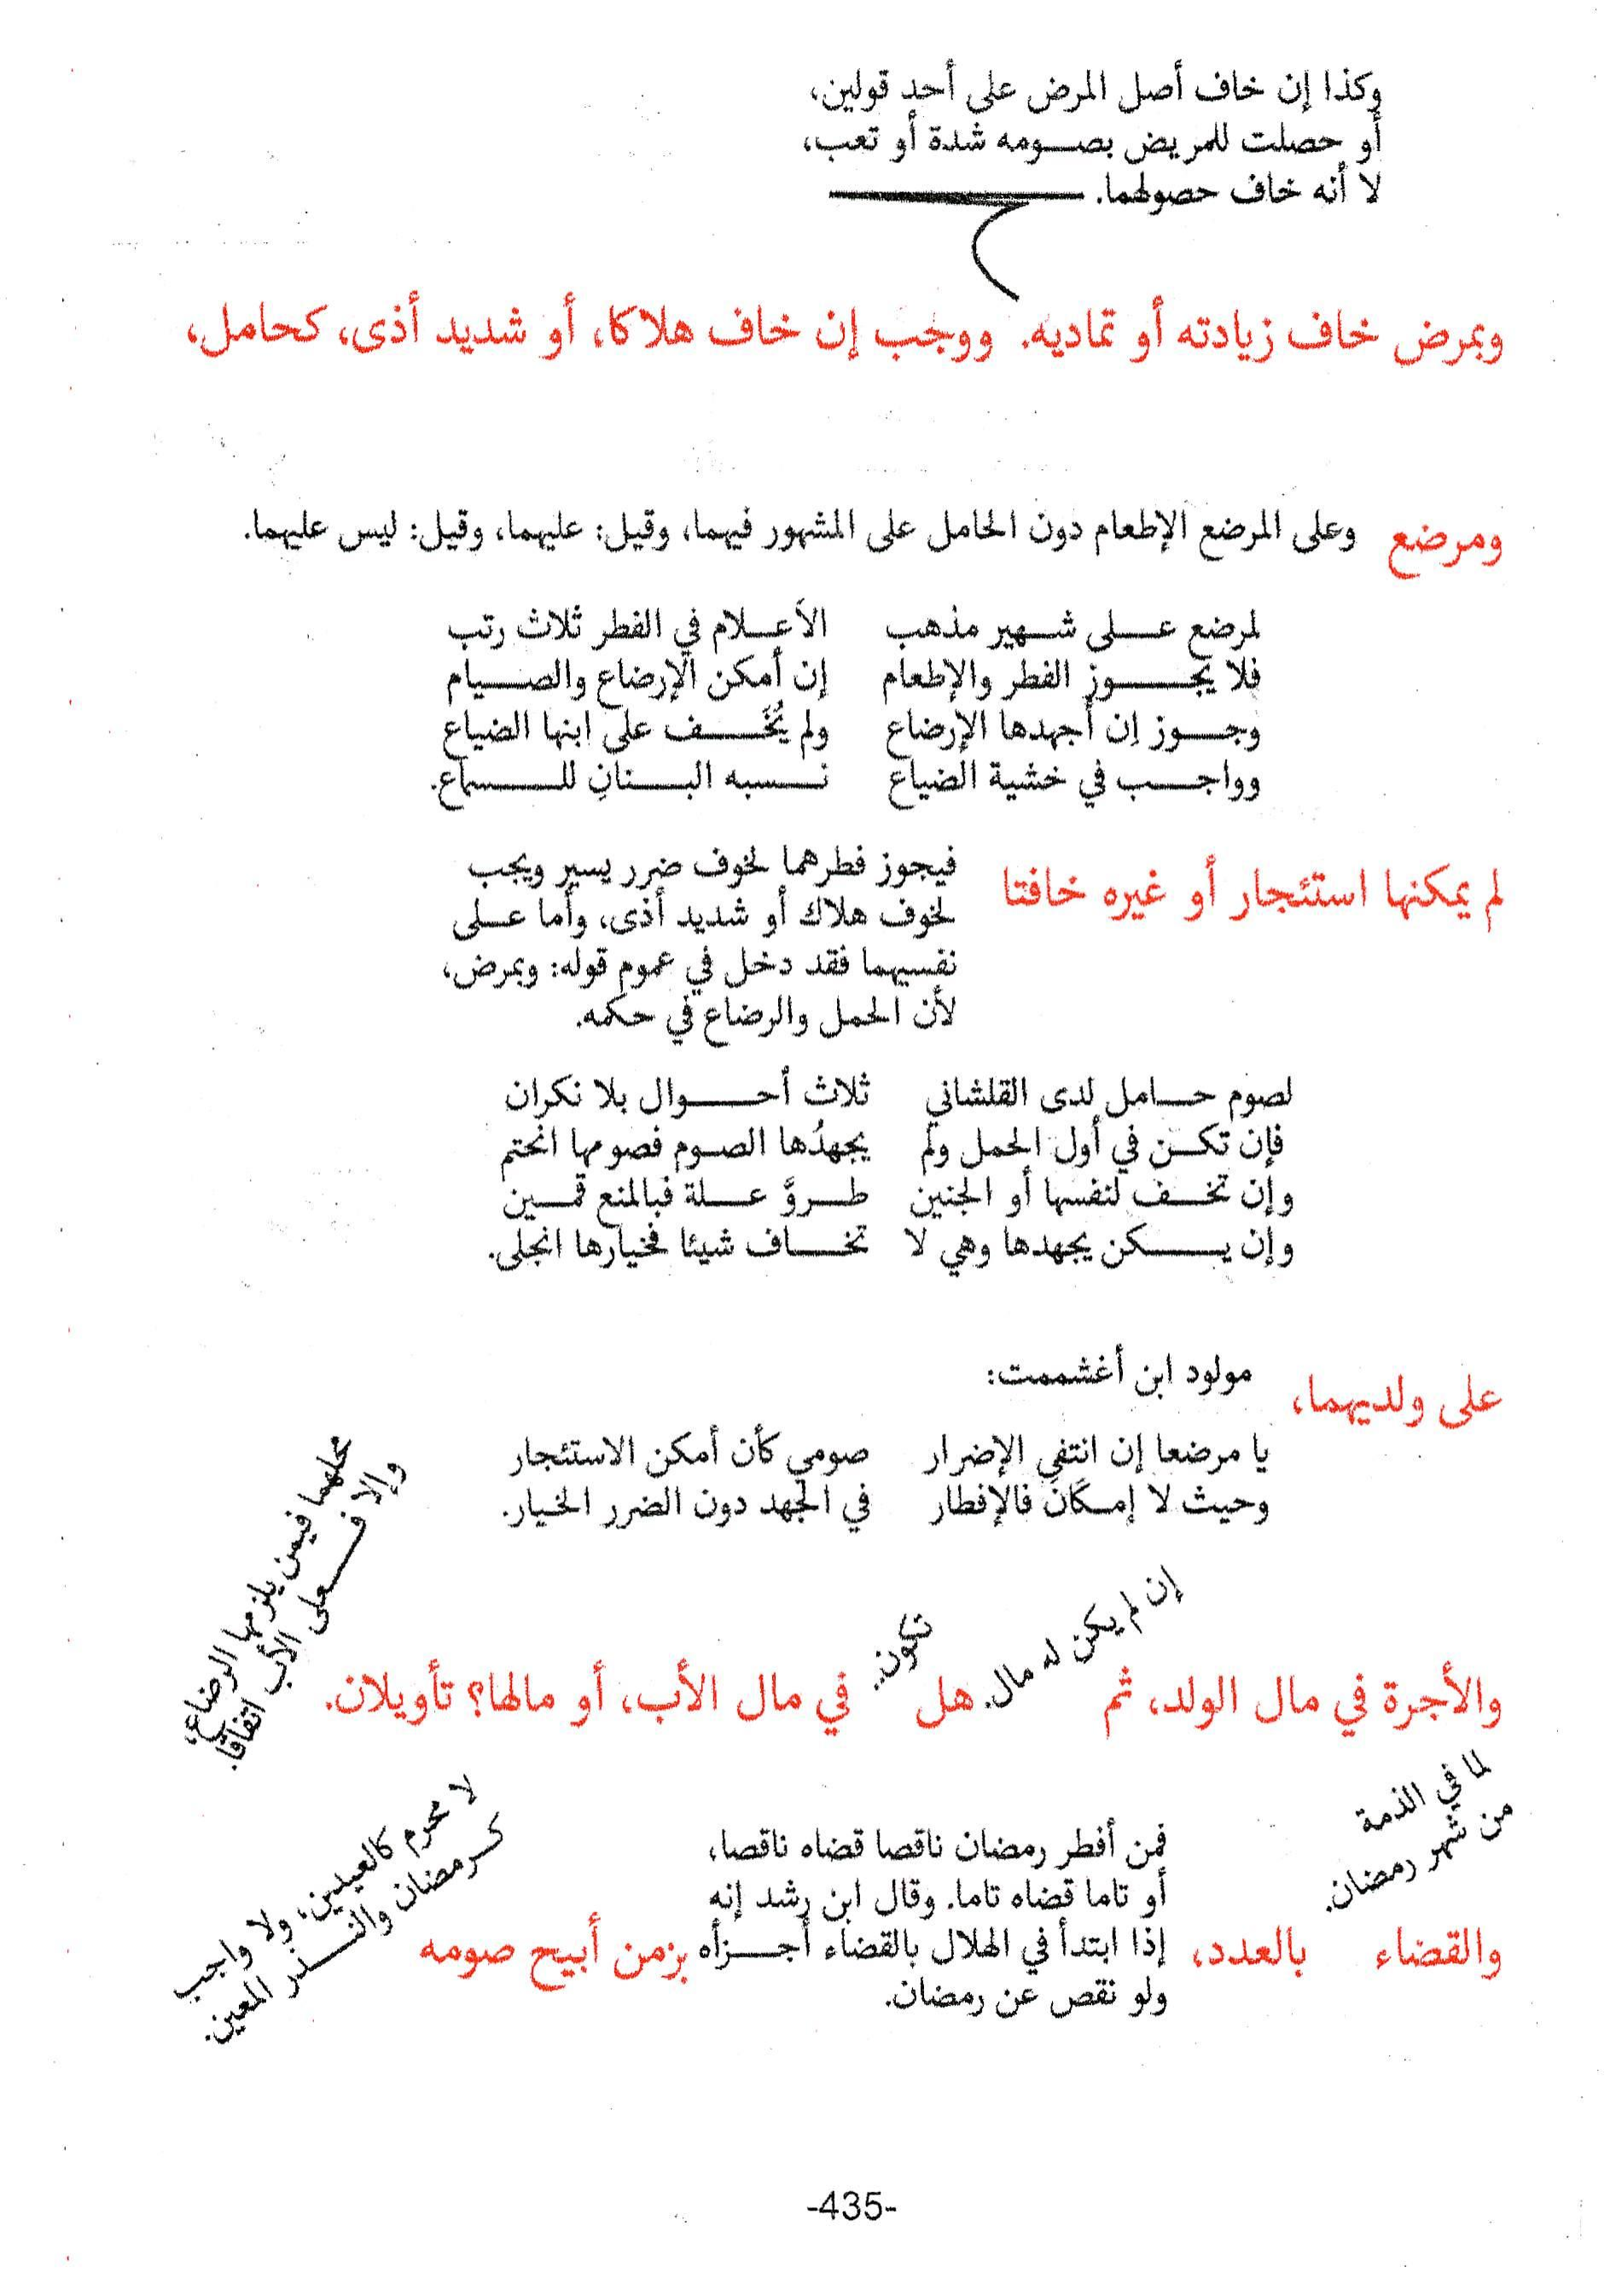 وكذا إن خاف أصل المرض على أحد قولين،
أو حصلت للمريض بصومه شدة أو تعب،
لا أنه خاف حصولهما.
وبمرض خاف زيادته أو تماديه. ووجب إن خاف هلاكا، أو شديد أذى، كحامل،
ومرضع وعلى المرضع الإطعام دون الحامل على المشهور فيهما، وقيل: عليهما، وقيل: ليس عليهما.
لمرضع على شهير مذهب الأعلام في الفطر ثلاث رتب
فلا يجوز الفطر والإطعام إن أمكن الإرضاع والصيام
وجوز إن أجهدها الإرضاع ولم يُخَف على ابنها الضياع
وواجب في خشية الضياع نسبه البنانِ للسماع.
لم يمكنها استئجار أو غيره خافتا
فيجوز فطرهما لخوف ضرر يسير ويجب
لخوف هلاك أو شديد أذى، وأما على
نفسيهما فقد دخل في عموم قوله: وبمرض،
لأن الحمل والرضاع في حكمه.
لصوم حامل لدى القلشاني ثلاث أحوال بلا نكران
فإن تكن في أول الحمل ولم يجهدُها الصوم فصومها انحتم
وإن تخف لنفسها أو الجنين طروَّ علة فبالمنع قمين
وإن يكن يجهدها وهي لا تخاف شيئا فخيارها انجلى.
على ولديهما،
مولود ابن أغشممت:
يا مرضعا إن انتفى الإضرار صومي كأن أمكن الاستئجار
وحيث لا إمكَانَ فالإفطار في الجهد دون الضرر الخيار.
والأجرة في مال الولد، ثم
إن لم يكن له مال.
هل
تكون..
في مال الأب، أو مالها؟ تأويلان.
محلهما فيمن يلزمها الرضاع،
وإلا فعلى الأب اتفاقا.
والقضاء
لما في الذمة
من شهر رمضان.
بالعدد،
فمن أفطر رمضان ناقصا قضاه ناقصا،
أو تاما قضاه تاما. وقال ابن رشد إنه
إذا ابتدأ في الهلال بالقضاء أجزأه
ولو نقص عن رمضان.
بزمن أبيح صومه
لا محرم كالعيدين، ولا واجب
كرمضان والنذر المعين.
-435-